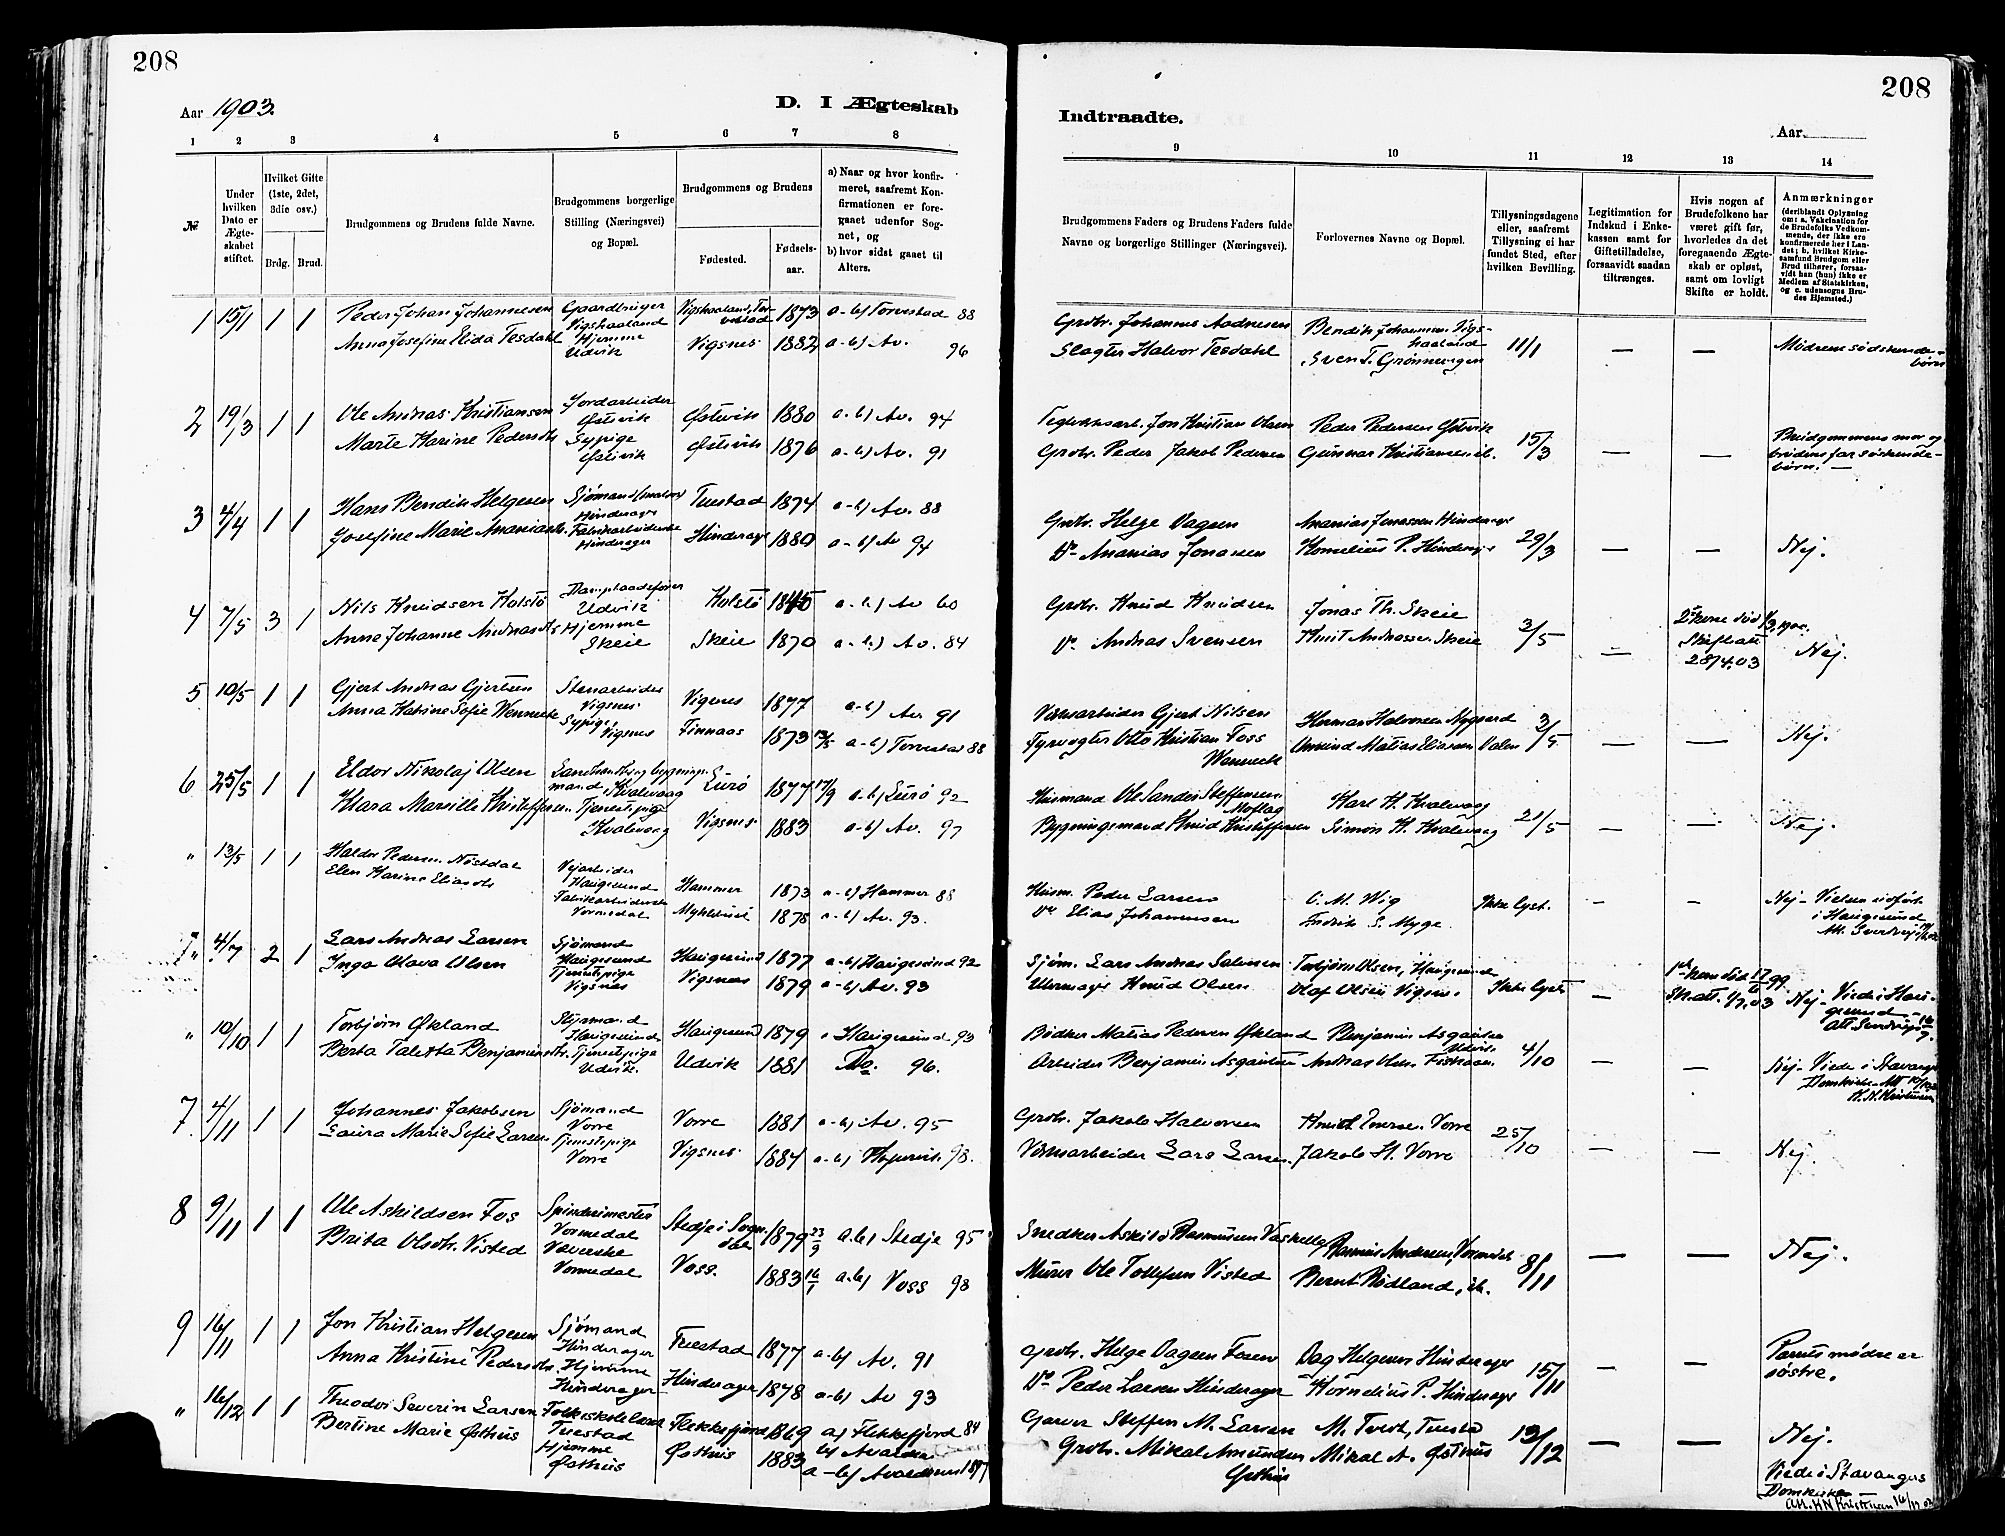 208
208
Aar 1903.
D. I Ægteskab
Indtraadte.
Aar
1 2 3 4 5 6 7 8
9 10 11 12 13 14
№
Under hvilken Dato er Ægteskabet stiftet.
Hvilket Gifte (1ste, 2det, 3die osv.)
Brdg. Brud.
Brudgommens og Brudens fulde Navne.
Brudgommens borgerlige Stilling (Næringsvei) og Bopæl.
Brudgommens og Brudens
Fødested.
Fødselsaar.
a) Naar og hvor konfirmeret, saafremt Konfirmationen er foregaaet udenfor Sognet, og
b) hvor sidst gaaet til Alters.
Brudgommens Faders og Brudens Faders fulde Navne og borgerlige Stillinger (Næringsvei).
Forlovernes Navne og Bopæl.
Tillysningsdagene eller, saafremt Tillysning ei har fundet Sted, efter hvilken Bevilling.
Legitimation for Indskud i Enkekassen samt for Giftetilladelse, forsaavidt saadan tiltrænges.
Hvis nogen af Brudefolkene har været gift før, hvorledes da det foregaaende Ægteskab er opløst, samt om lovligt Skifte er holdt.
Anmærkninger
(deriblandt Oplysning om: a. Vakcination for de Brudefolks Vedkommende, der ikke ere konfirmerede her i Landet; b. hvilket Kirkesamfund Brudgom eller Brud tilhører, forsaavidt han (hun) ikke er Medlem af Statskirken, og c. udensogns Brudes Hjemsted.)
1 15/1 1 1 Peder Johan Johannesen Gaardbruger Vigshaaland Vigshaaland, Torvestad 1873 a-b) Torvestad 88 Grdbr. Johannes Aadnesen Bendik Johannesen Vigshaaland 11/1 — — Mødrene sødskendebørn
Anna Josefine Elida Tesdahl Hjemme Udvik Vigsnes 1882 a-b) Av. 96 Slagter Halvor Tesdahl Sven T. Grønningen
2 19/3 1 1 Ole Andreas Kristiansen Jordarbeider Østevik Østevik 1880 a-b) Av. 94 Jon Kristian Olsen Peder Pedersen Østevik 15/3 — — Brudgommens mor og brudens far søskendebørn. —
Marte Karine Pedersdtr Sypige Østevik Østevik 1876 a-b) Av. 91 Grdbr. Peder Jakob Pedersen Gunnar Kristiansen ib.
3 4/4 1 1 Hans Bendik Helgesen Sjømand Hinderager Tuestad 1874 a-b) Av. 88 Grdbr. Helge Dagsen Ananias Jonassen Hinderager 29/3 — — Nej.
Josefine Marie Ananiasdtr. Fabrikarbeiderske Hinderager Hinderager 1880 a-b) Av 94 Do Ananias Jonassen Kornelius P. Hinderager
4 7/5 3 1 Nils Knudsen Kolstø Dampbaadsfører Udvik Kolstø 1845 a-b) Av 60 Grdbr. Knud Knudsen Jonas Th. Skeie 3/5 — 2den kone død 1/3.1900. Skifteatt 28/4.03 Nej.
Anne Johanne Andreasdtr Hjemme Skeie Skeie 1870 a-b) Av. 84 Do Andreas Svensen Knut Andreassen Skeie
5 10/5 1 1 Gjert Andreas Gjertsen Stenarbeider Vigsnes Vigsnes 1877 a-b) Av. 91 Verksarbeider Gjert Nilsen Herman Halvorsen Nygaard 3/5 — — Nej.
Anna Katrine Sofie Wenneche Sypige, Vigsnes Finnaas 1873 a-b) Torvestad 88 Fyrvogter Otto Kristian Foss Amund Matias Eliassen Dalen
6 25/5 1 1 Eldor Nikolaj Olsen Kvalevaag Lurø 1877 17/9 a-b) Lurø 92 Husmand Ole Sander Steffensen Karl H. Kvalevaag 21/5 — — Nej.
Klara Marielle Kristoffersen. Tjenestepige Kvalevaag Vigsnes 1883 a-b) Av. 97 Bygningsmand Knud Kristoffersen Simon H. Kvalevaag
" 13/5 1 1 Haldor Pedersen Nøstdal Vejarbeider Haugesund Hammer 1873 a-b) Hammer 88 Husm. Peder Larsen O. M. Wig Ikke lyst. — — Nej - Vielsen udført i Haugesund
Elen Karine Eliasdtr Fabrikarbeiderske Vormedal Myklebust 1878 a-b) Av. 93. Do Elias Johannesen Fredrik S. Myge
7" 4/7 2 1 Lars Andreas Larsen Sjømand Haugesund Haugesund 1877 a-b) Haugesund 92 Sjøm. Lars Andreas Salvesen Torbjørn Olsen, Haugesund Ikke lyst — 1ste kone død 99 Sk.att. 1/7.03 Nej - Viede i Haugesund
Inga Olava Olsen Tjenestepige Vigsnes Vigsnes 1879 a-b) Av. 93 Uhrmager Knud Olsen Olaf Olsen Vigsnes
" 10/10 1 1 Torbjørn Økland Styrmand Haugesund Haugesund 1879 Haugesund 93 Bødker Matias Pedersen Økland Benjamin Asgautsen Udvik 4/10 — — Nej - Viede i Stavanger Domkirke
Berta Taletta Benjaminsdtr. Tjenestepige Udvik. Udvik 1881 Av. 96. Arbeider Benjamin Asgautsen Andreas Olsen
7 4/11 1 1 Johannes Jakobsen Sjømand Vorre Vorre 1881 a-b) Av. 95 Grdbr. Jakob Halvorsen Knud Vorre 25/10 — — Nej.
Laura Marie Sofie Larsen Tjenestepige Vorre Vigsnes 1884 a-b) 98. Verksarbeider Lars Larsen Jakob H. Vorre
8 9/11 1 1 Ole Askildsen Fos Spinderimester Vormedal Stedje i Sogndal 1879 23/9 a.b) Stedje 95 Snedker Askild Rasmussen Rasmus Andersen, Vormedal 8/11 — — Nej.
Brita Olsdtr. Visted Væverske Vormedal Voss. 1883 16/1 a.b) Voss 98 Murer Ole Tollefsen Visted Bernt Rødland, ib.
9 16/11 1 1 Jon Kristian Helgesen Sjømand Hinderager Tuestad 1877 a-b) Av. 91 Grdbr. Helge Dagsen Dag Helgesen Hinderager 15/11 — — Parrets mødre er søstre.
Anna Kristine Pedersdtr Hjemme Hinderager Hinderager 1878 a-b) Av 93 Do Peder Larsen Hinderager Kornelius P. Hinderager
" 16/12 1 1 Theodor Severin Larsen Folkeskolelærer Tuestad Flekkefjord 1869 a) Flekkefjord 84 b) Avaldsnes Garver Steffen M. Larsen M. Tvedt, Tuestad 13/12 — — Nej.
Bertine Marie Østhus Hjemme Østhus Østhus 1883 a-b) Avaldsnes 1897 Grdbr. Mikal Amundsen Østhus Mikal A. Østhus Viede i Stavangers Domkirke